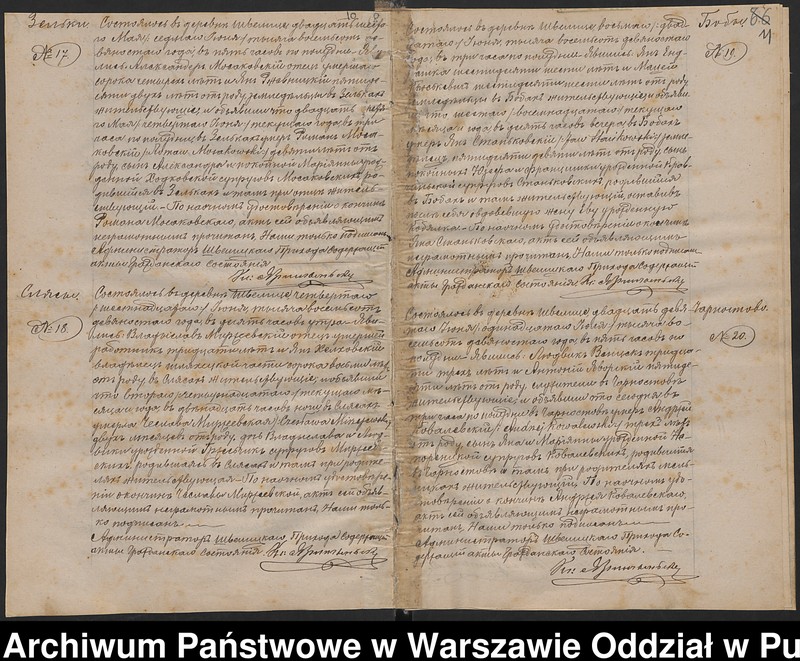 Зельки.
№ 17.
Состоялось въ деревнѣ Швелице двадцать шестого
Мая / седьмаго Іюня / тысяча восемьсотъ де-
вяностаго года, въ пять часовъ по полудни. Яви-
лись Александръ Мосаковскій отецъ умершаго
сорока четырехъ лѣтъ и Янъ пятиде-
сяти двухъ лѣтъ отъ роду, земледѣльцы въ Зелькахъ
жительствующіе, и объявили что двадцать
Мая / четвертаго Іюня / текущаго года, въ три
часа по полудни, въ Зелькахъ умеръ Романъ Моса-
ковскій / Roman Mosakowski / девяти лѣтъ отъ
роду, сынъ Александра и покойной Маріянны уро-
жденной Ходковской супруговъ Мосаковскихъ, ро-
дившійся въ Зелькахъ и тамъ при отцѣ житель-
ствующій. – По настоянномъ удостовѣреніи о кончинѣ
Романа Мосаковскаго, актъ сей объявляющимъ
неграмотнымъ прочитанъ, Нами только подписанъ
Администраторъ Швелицкаго Прихода Содержащій
акты Гражданскаго состоянія
Кс.
Сляски.
№ 18.
Состоялось въ деревнѣ Швелице четвертаго
/ шестнадцатаго / Іюня, тысяча восемьсотъ
девяностаго года, въ десять часовъ утра. Яви-
лись Владиславъ Мирѣевскій отецъ умершей
работникъ тридцати лѣтъ и Янъ Хелховскій
владѣлецъ шляхецкой части сорока восьми лѣтъ
отъ роду, въ Сляскахъ жительствующіе, и объявили
что втораго / четырнадцатаго / текущаго мѣ-
сяца и года, въ двѣнадцать часовъ ночи, въ Сляскахъ
умерла Чеслава Мирѣевская / Czesława
двухъ мѣсяцевъ отъ роду, дочь Владислава и Людо-
вики урожденной супруговъ Мирѣев-
скихъ, родившаяся въ Сляскахъ и тамъ при родите-
ляхъ жительствующая. – По настоянномъ удостовѣре-
ніи о кончинѣ Чеславы Мирѣевской, актъ сей объяв-
ляющимъ неграмотнымъ прочитанъ, Нами толь-
ко подписанъ.
Администраторъ Швелицкаго Прихода Содержащій
акты Гражданскаго Состоянія Кс.
86
11
Бобы.
№ 19.
Состоялось въ деревнѣ Швелице восьмаго / двад-
цатаго / Іюня, тысяча восемьсотъ девяностаго
года, въ три часа по полудни. Явились Янъ Енд-
шестидесяти шести лѣтъ и Мацей
шестидесяти шести лѣтъ отъ роду
земледѣльцы въ Бобахъ жительствующіе, и объяви-
ли что шестаго / восемнадцатаго / текущаго
мѣсяца и года, въ десять часовъ вечера, въ Бобахъ
умеръ Янъ Станьковскій / Jan Stańkowski / земле-
дѣлецъ, пятидесяти девяти лѣтъ отъ роду, сынъ
покойныхъ и Францишки урожденной
супруговъ Станьковскихъ, родившійся
въ Бобахъ и тамъ жительствующій, оставивъ
послѣ себя овдовѣвшую жену Еву урожденную
По настоянномъ удостовѣреніи о кончинѣ
Яна Станьковскаго, актъ сей объявляющимъ
неграмотнымъ прочитанъ, Нами только подписанъ
Администраторъ Швелицкаго Прихода Содержащій
акты Гражданскаго Состоянія Кс.
Чарностово.
№ 20.
Состоялось въ деревнѣ Швелице, двадцать девя-
таго Іюня / одинадцатаго Іюля / тысяча во-
семьсотъ девяностаго года, въ пять часовъ по
полудни. Явились Людвикъ тридца-
ти трехъ лѣтъ и Антоній Яворскій пятиде-
сяти лѣтъ отъ роду, служители въ Чарностовѣ
жительствующіе, и объявили что сегодня въ
три часа по полудни, въ Чарностовѣ умеръ Андрей
Ковалевскій / Andrej Kowalewski / трехъ лѣтъ
отъ роду, сынъ Яна и Маріянны урожденной На-
супруговъ Ковалевскихъ, родившійся
въ Чарностовѣ и тамъ при родителяхъ
жительствующій. По настоянномъ удо-
стовѣреніи о кончинѣ Андрея Ковалевскаго,
актъ сей объявляющимъ неграмотнымъ про-
читанъ, Нами только подписанъ.
Администраторъ Швелицкаго Прихода Со-
держащій акты Гражданскаго Состоянія.
Кс.
Archiwum Państwowe w Warszawie Oddział w Pu